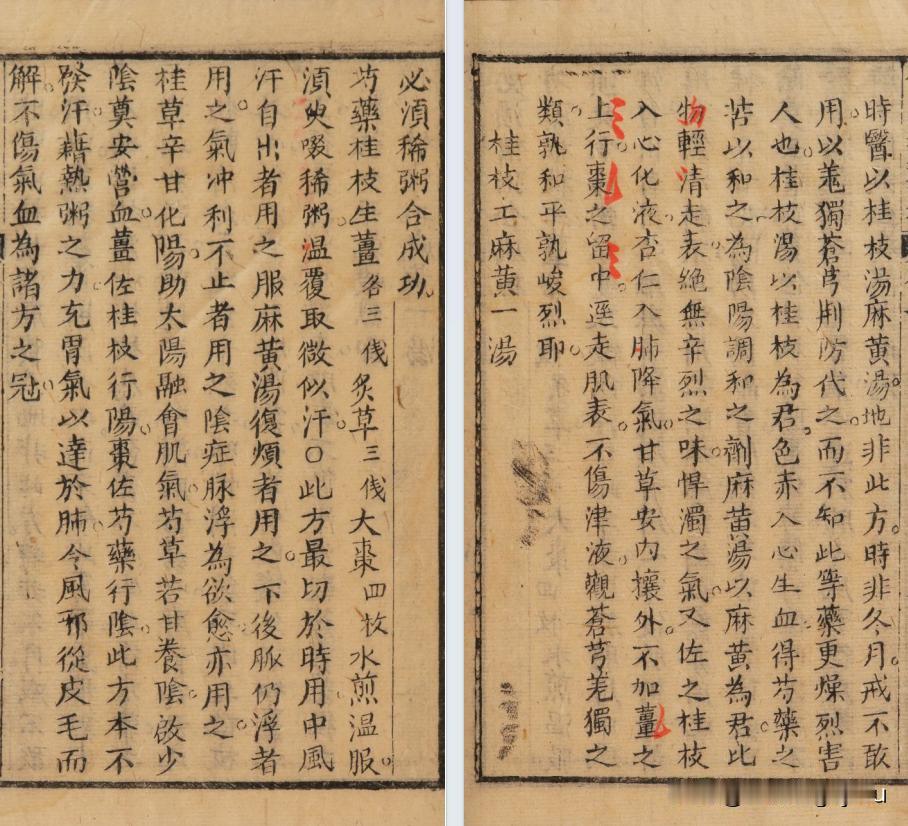 時醫以桂枝湯麻黃湯。地非此方。時非冬月。戒不敢
用。以羗獨蒼芎荆防代之。而不知此等藥更燥烈害
人也。桂枝湯以桂枝為君。色赤入心生血得芍藥之
苦以和之。為陰陽調和之劑。麻黃湯以麻黃為君。此
物輕清走表。絕無辛烈之味。悍濁之氣。又佐之桂枝
入心化液。杏仁入肺降氣。甘草安內攘外。不加薑之
上行。棗之留中。逕走肌表。不傷津液。觀蒼芎羗獨之
類。孰和平孰峻烈耶。
桂枝工麻黃一湯
必湏稀粥合成功
芍藥桂枝生薑各三伐炙草三伐大棗四枚水煎溫服。
湏臾啜稀粥。溫覆取微似汗。○此方最切於時用。中風
汗自出者用之。服麻黃湯復煩者用之。下後脈仍浮者
用之。氣冲利不止者用之。陰症脉浮為欲愈。亦用之。
桂草辛甘化陽。助太陽融會肌氣。芍草若甘養陰。啟少
陰奠安營血。薑佐桂枝行陽。棗佐芍藥行陰。此方本不
發汗。藉熱粥之力。充胃氣以達於肺。令風邪從皮毛而
解。不傷氣血。為諸方之冠。